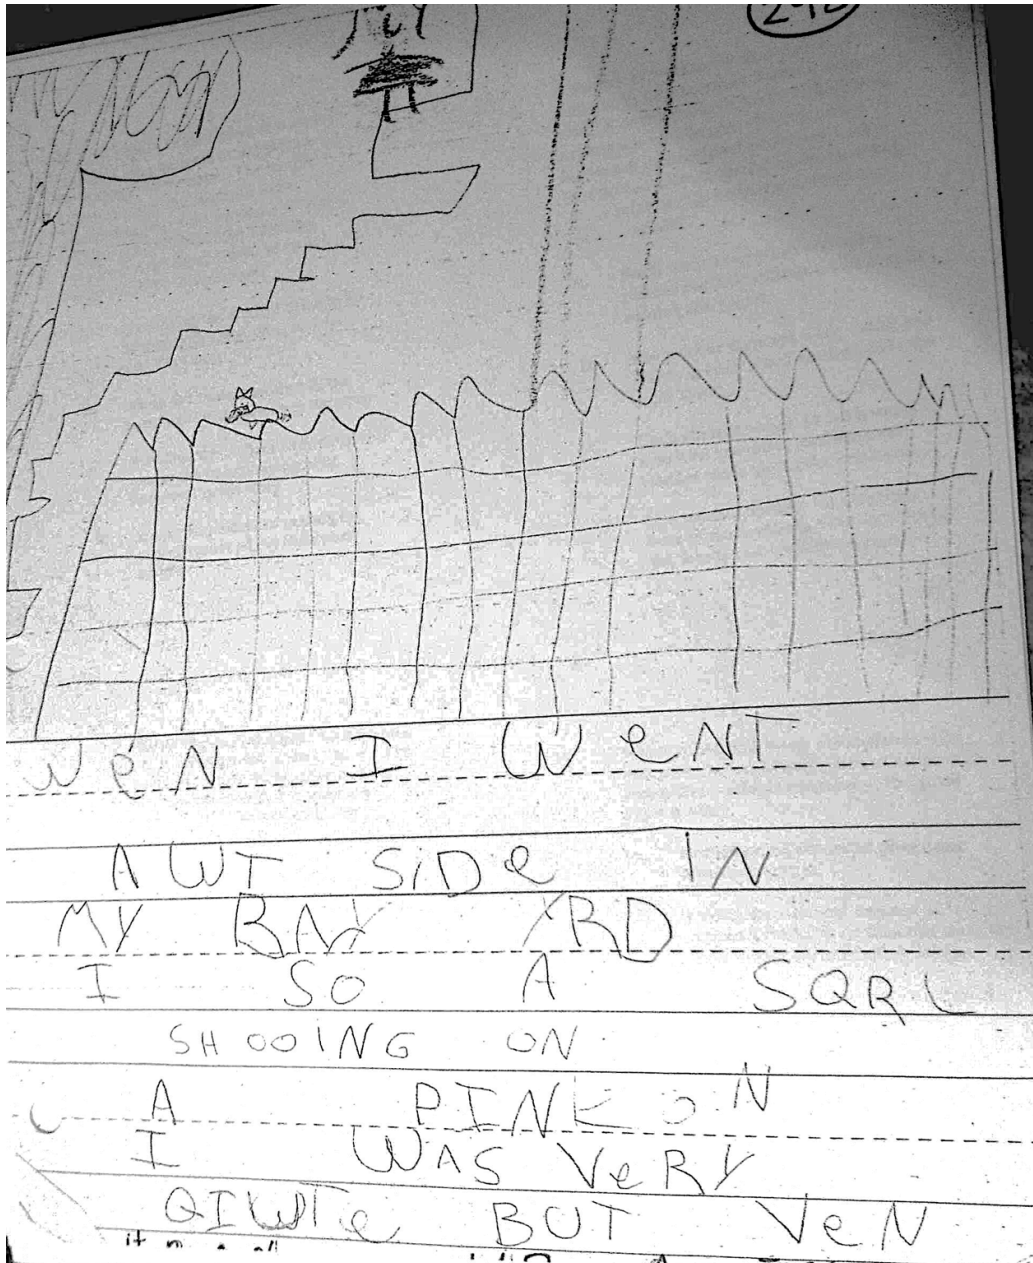 WeN I WeNT
AWT SiDe IN
MY BAY YRD
I SO A SQRL
SHOOING ON
A PINK ON
I WAS VeRY
QIWTe BUT VeN